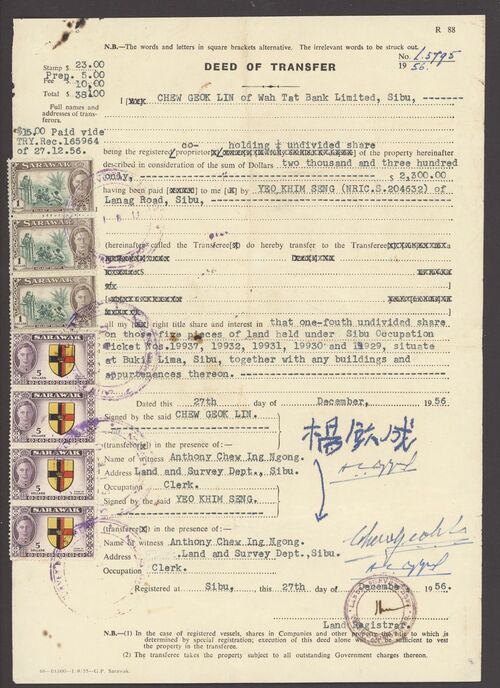 R 88
N.B.—The words and letters in square brackets alternative. The irrelevant words to be struck out.
No. L.5795
1956.
Stamp $ 23.00
Prep. 5.00
Fee $ 10.00
Total $ 38.00
DEED OF TRANSFER
Full names and addresses of transferors.
I CHEW GEOK LIN of Wah Tat Bank Limited, Sibu, -------
$15.00 Paid vide
TRY.Rec.165964
of 27.12.56.
co- holding ¼ undivided share
being the registered proprietor of the property hereinafter
described in consideration of the sum of Dollars two thousand and three hundred
only, $ 2,300.00
having been paid to me by YEO KHIM SENG (NRIC.S.204632) of
Lanag Road, Sibu, -------
(hereinafter called the Transferee) do hereby transfer to the Transferee
all my right title share and interest in that one-fourth undivided share
on those five pieces of land held under Sibu Occupation
Ticket Nos.19937, 19932, 19931, 19930 and 19929, situate
at Bukit Lima, Sibu, together with any buildings and
appurtenances thereon.
Dated this 27th day of December, 1956
Signed by the said CHEW GEOK LIN.
(transferor) in the presence of:—
Name of witness Anthony Chew Ing Ngong.
Address Land and Survey Dept., Sibu.
Occupation Clerk.
Signed by the said YEO KHIM SENG.
(transferee) in the presence of:—
Name of witness Anthony Chew Ing Ngong.
Address Land and Survey Dept., Sibu.
Occupation Clerk.
Registered at Sibu, this 27th day of December 1956.
Land Registrar.
N.B.—(1) In the case of registered vessels, shares in Companies and other property the title to which is
determined by special registration; execution of this deed alone will not be sufficient to vest
the property in the transferee.
(2) The transferee takes the property subject to all outstanding Government charges thereon.
SARAWAK
1
SARAWAK
1
SARAWAK
1
SARAWAK
5
DOLLARS
SARAWAK
5
DOLLARS
SARAWAK
5
DOLLARS
SARAWAK
5
DOLLARS